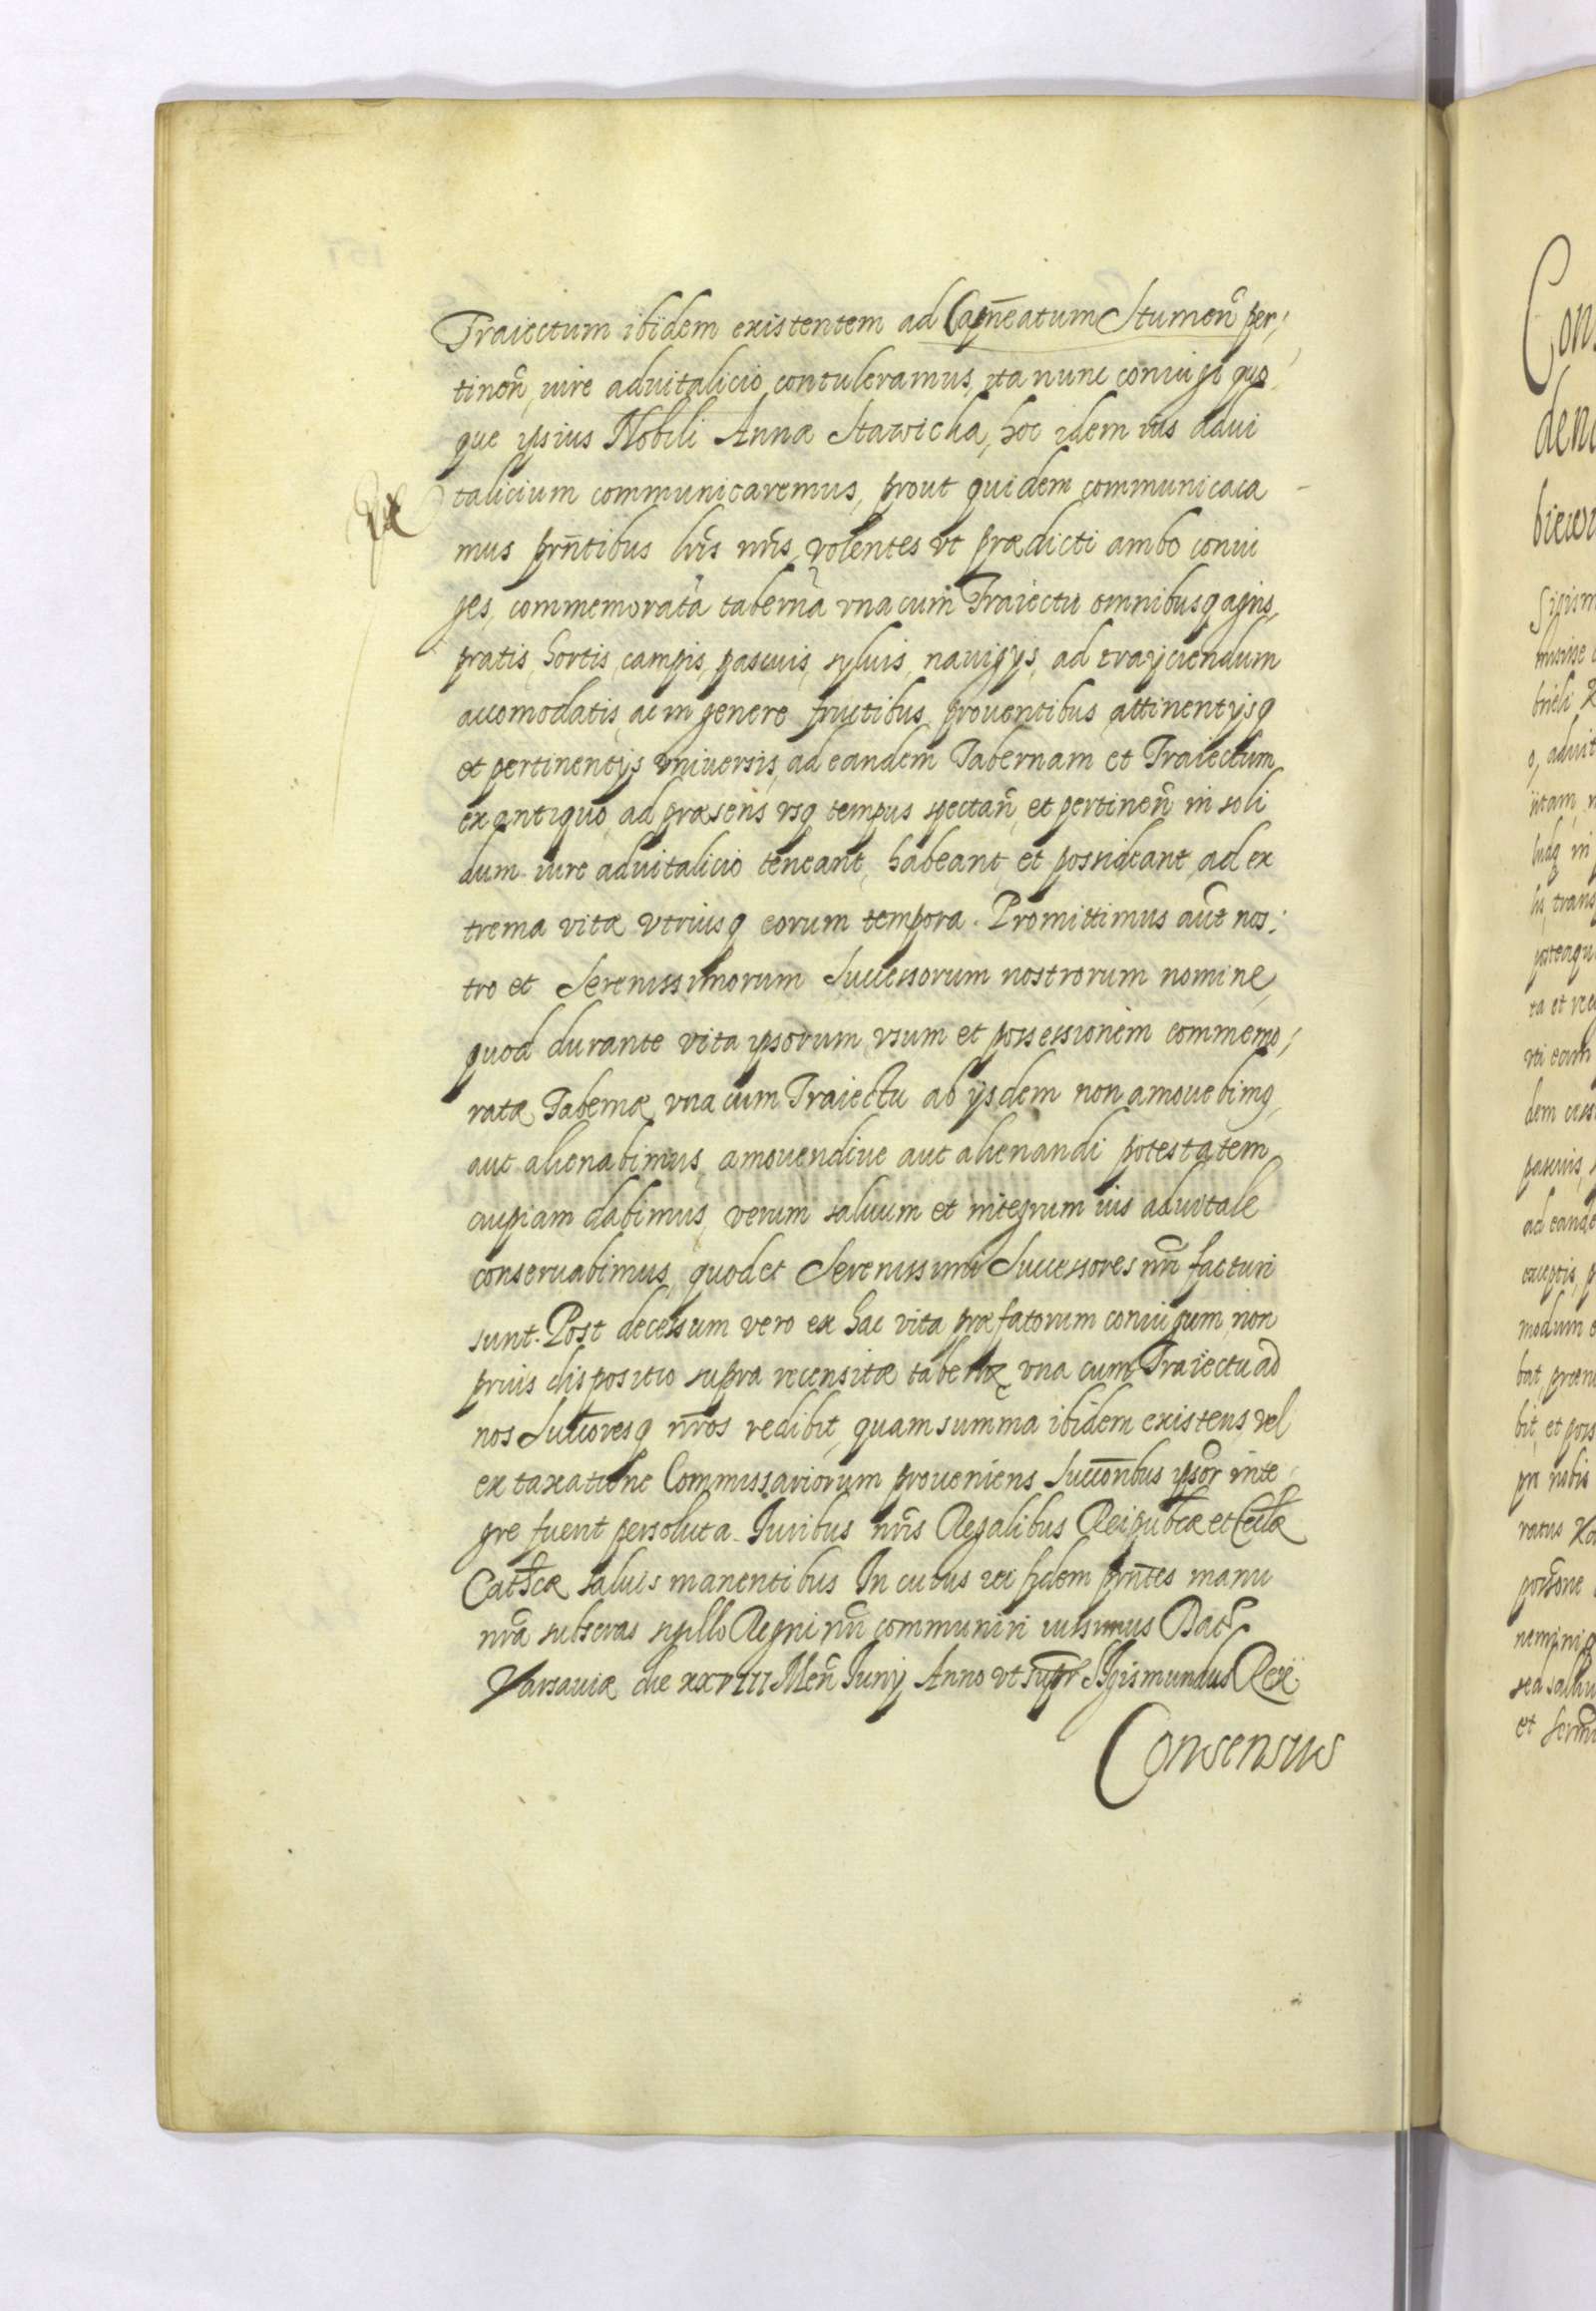 Traiectum ibidem existentem ad Capneatum Stumen̄ per,
tinen̄, iure aduitalicio contuleramus, ita nunc coniugi quo
que ipsius Nobili Annæ Stawicka, hoc idem ius adui
talicium communicaremus, prout quidem communicaca
mus prn̄tibus lr̄is nr̄is, volentes vt prædicti ambo coniu
ges, commemorata taberna vna cum Traiectu omnibusq agris,
pratis, hortis, campis, pascuis, syluis, nauigijs, ad traijciendum
accomodatis, ac in genere fructibus, prouentibus, attinentijsq
et pertinentijs vniuersis, ad eandem Tabernam et Traiectum
ex antiquo, ad præsens vsq tempus spectan̄, et pertinen̄ in soli
dum iure aduitalicio teneant, habeant, et possideant, ad ex
trema vitæ vtriusq eorum tempora. Promittimus aūt nos:
tro et Serenissimorum Successorum nostrorum nomine,
quod durante vita ipsorum, vsum et possessionem commemo,
ratæ Tabernæ, vna cum Traiectu ab ijsdem non amouebimq,
aut alienabimus, amouendiue aut alienandi potestatem
cuipiam dabimus, verum saluum et integrum ius aduitale
conseruabimus, quod et Serenissimi Successores nr̄i facturi
sunt. Post decessum vero ex hac vita præfatorum coniugum, non
prius dispositio supra recensitæ tabernæ, vna cum Traiectu ad
nos Succ̄oresq nr̄os redibit, quam summa ibidem existens, vel
ex taxatione Commissariorum proueniens Succ̄oribus ipsor̄ inte
gre fuerit persoluta. Iuribus nr̄is Regalibus Reipub̄cæ et Ecc̄læ
Catħcæ saluis manentibus In cuius rei fidem prn̄tes manu
nr̄a subscras sigillo Regni nr̄i communiri iussimus Dat̄
Varsauiæ die xxviii Men̄ Iunij Anno vt supr̄ Sigismundus Rex
Consensus